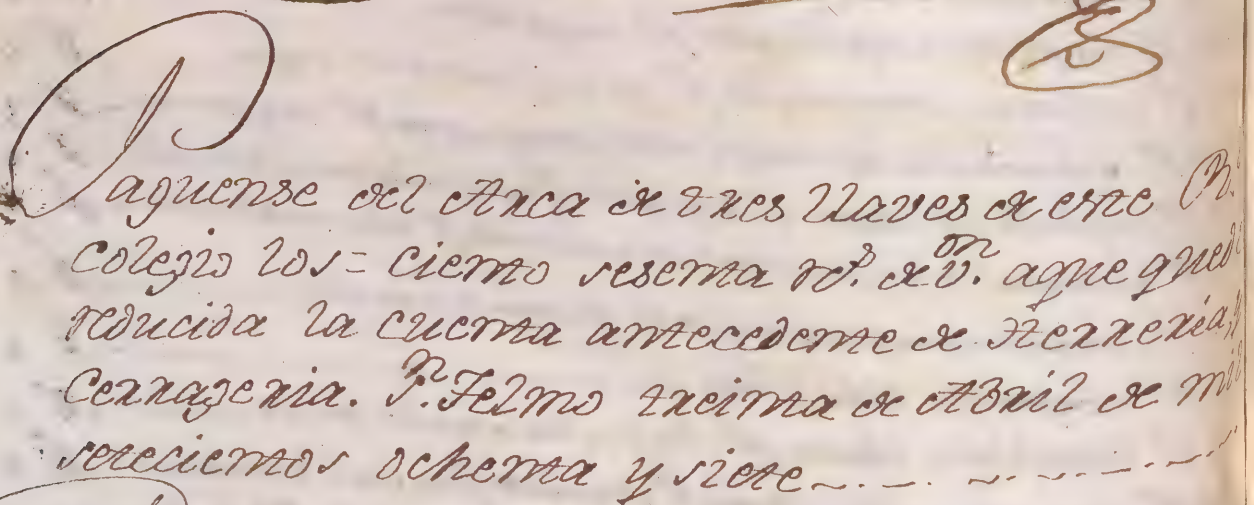 Paguense del Arca de tres llaves de este R.
colegio los = ciento sesenta rs. de vn. aque quedó
reducida la cuenta antecedente de Herreria, y
Cerrageria. Sn. Telmo treinta de Abril de mil
setecientos ochenta y siete